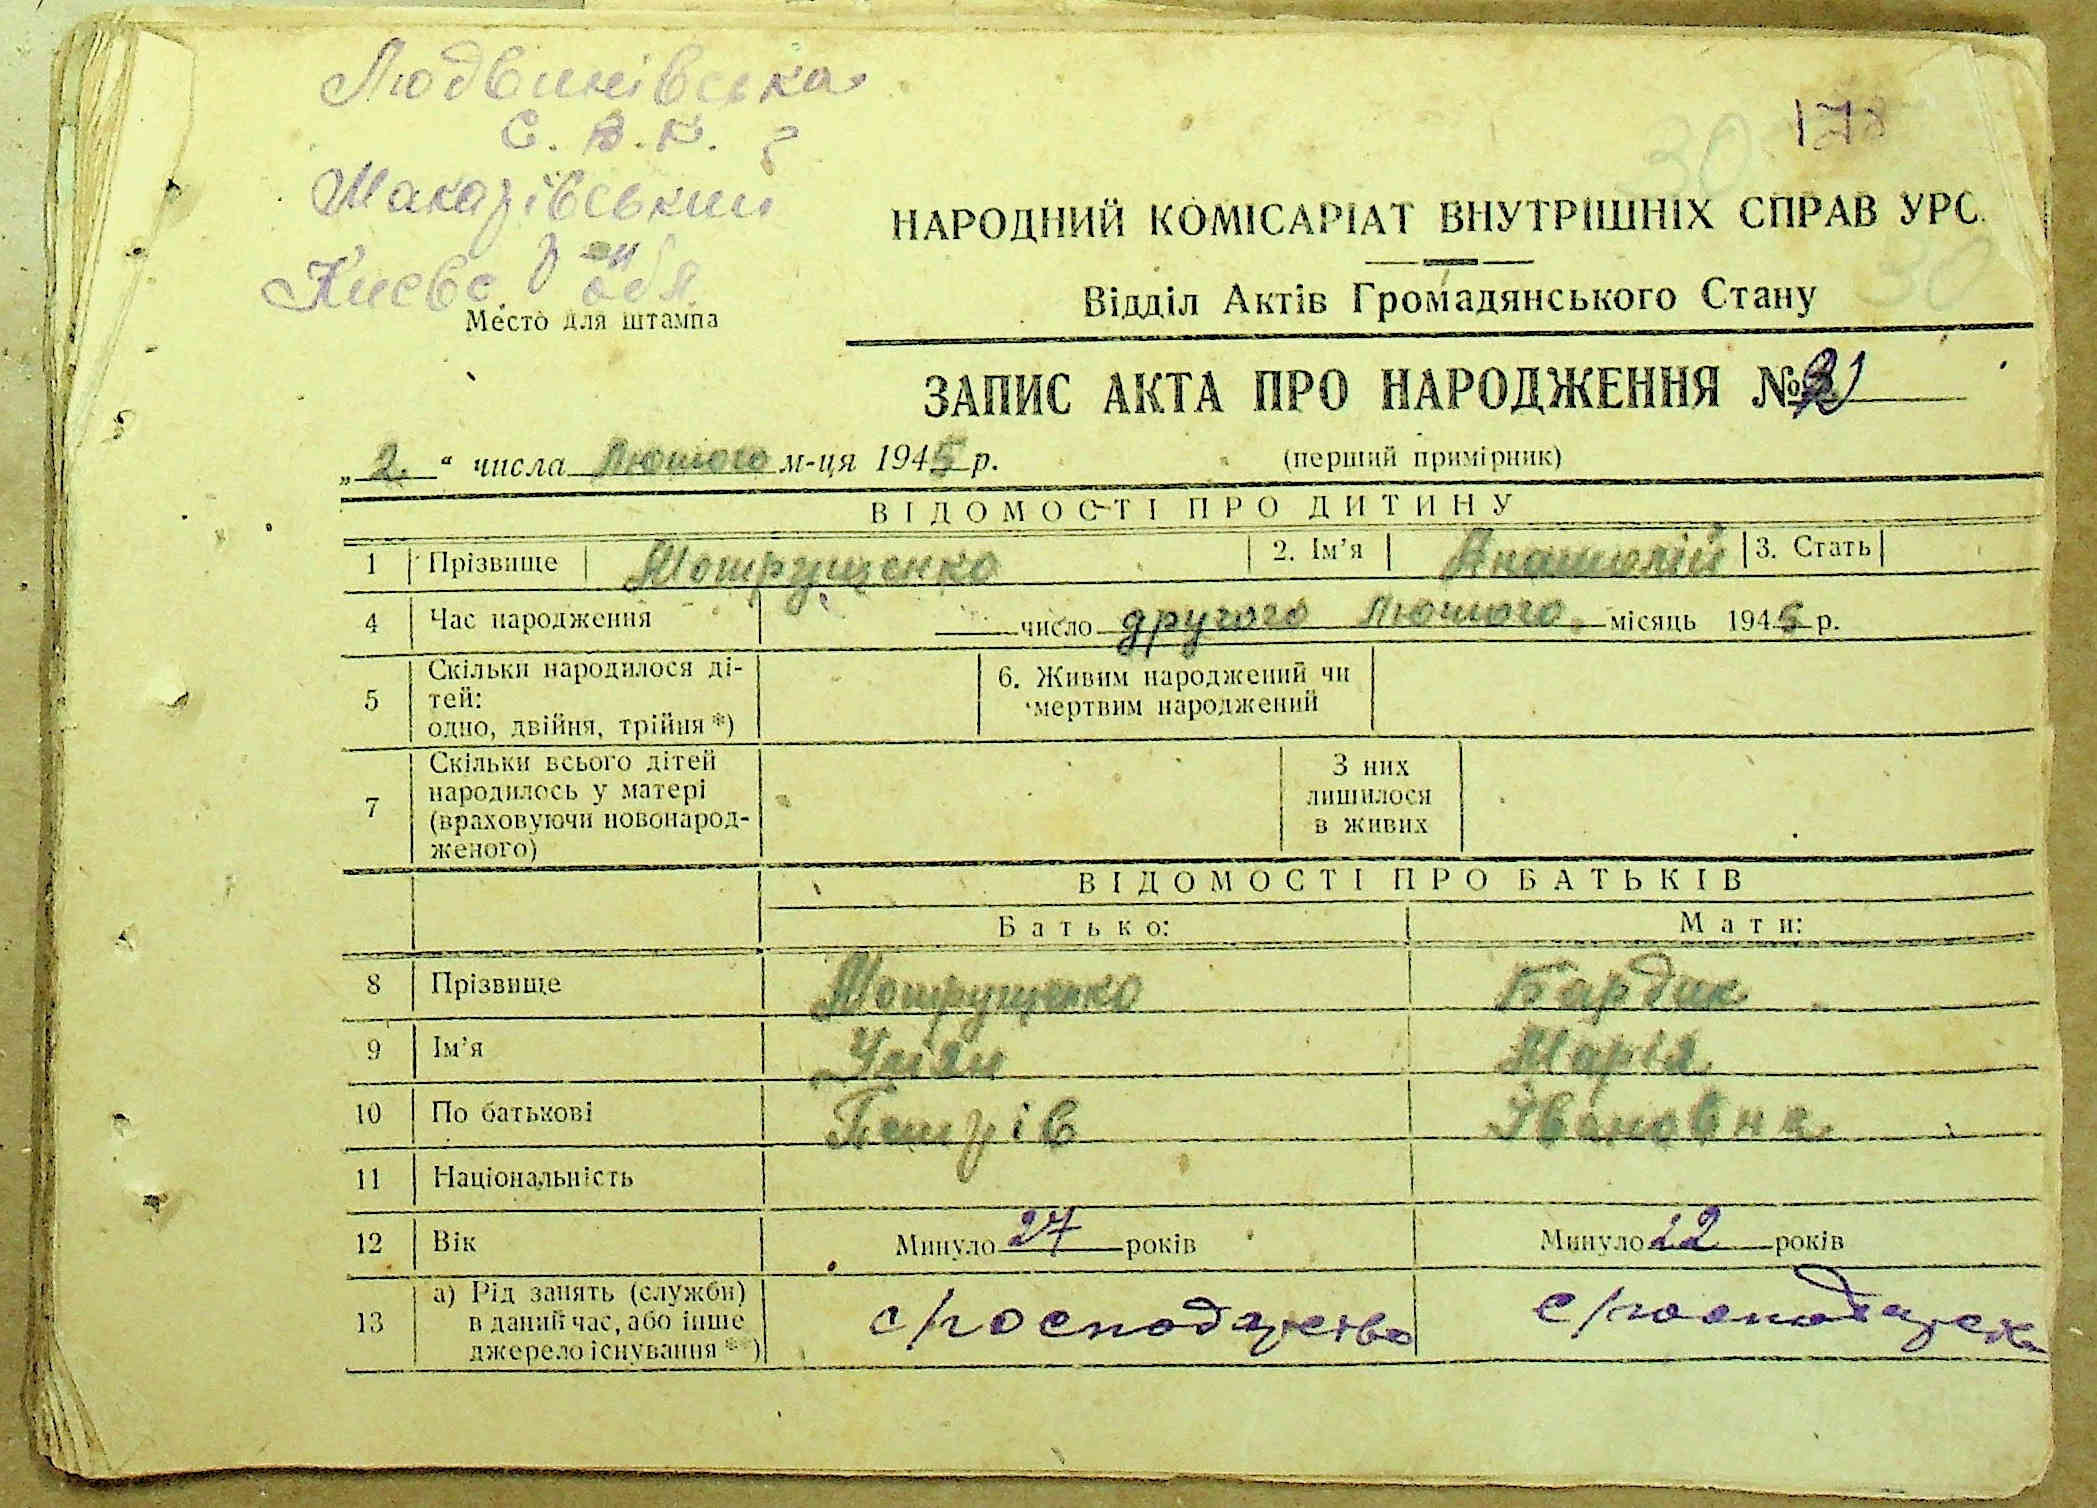 Людвинівська
С. В. К.
178
30
Макарівський
р-н
Києвс. обл.
Место для штампа
НАРОДНИЙ КОМІСАРІАТ ВНУТРІШНІХ СПРАВ УРС.
30
Відділ Актів Громадянського Стану
ЗАПИС АКТА ПРО НАРОДЖЕННЯ №
„ 2 “ числа Лютого м-ця 1945 р.
(перший примірник)
ВІДОМОСТІ ПРО ДИТИНУ
1 Прізвище Мотрущенко 2. Ім’я Анатолій 3. Стать
4 Час народження число другого Лютого місяць 1945 р.
5 Скільки народилося ді-
тей:
одно, двійня, трійня *)
6. Живим народжений чи
мертвим народжений
7 Скільки всього дітей
народилось у матері
(враховуючи новонарод-
женого)
З них
лишилося
в живих
ВІДОМОСТІ ПРО БАТЬКІВ
Батько: Мати:
8 Прізвище Мотрущенко Бардик
9 Ім’я Улян Марія
10 По батькові Петрів Івановна
11 Національність
12 Вік Минуло 27 років Минуло 22 років
13 а) Рід занять (служби)
в даний час, або інше
джерело існування **)
с/господарство с/господарство